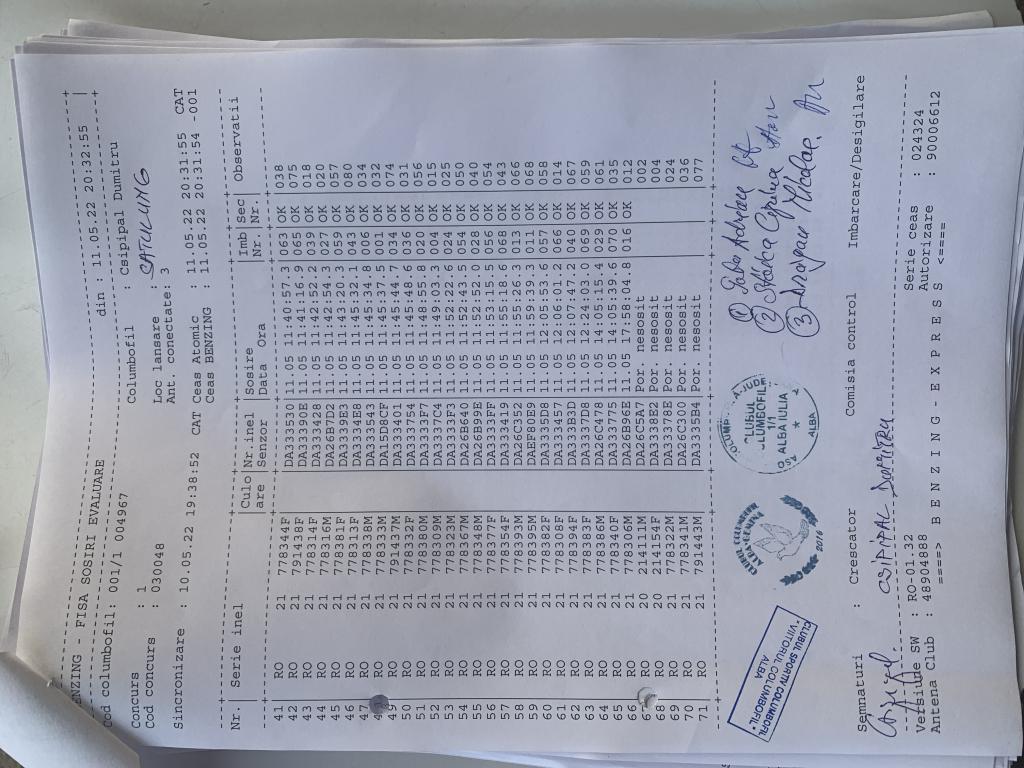 BENZING - FISA SOSIRI EVALUARE din : 11.05.22 20:32:55
Cod columbofil: 001/1 004967 Columbofil : Csipipal Dumitru
Concurs : 1 Loc lansare : SATULUNG
Cod concurs : 030048 Ant. conectate: 3
Sincronizare : 10.05.22 19:38:52 CAT Ceas Atomic : 11.05.22 20:31:55 CAT
Ceas BENZING : 11.05.22 20:31:54 -001
Nr.| Serie inel |Culo|Nr.inel |Sosire |Imb|Sec| Observatii
are |Senzor |Data Ora |Nr.|Nr.|
41 RO 21 778344F DA333530 11.05 11:40:57.3 063 OK 038
42 RO 21 791438F DA33390E 11.05 11:41:16.9 065 OK 075
43 RO 21 778314F DA333428 11.05 11:42:52.2 039 OK 018
44 RO 21 778316M DA26B7D2 11.05 11:42:54.3 027 OK 020
45 RO 21 778381F DA3339E3 11.05 11:43:20.3 059 OK 057
46 RO 21 778313F DA3334E8 11.05 11:45:32.1 043 OK 080
47 RO 21 778338M DA333543 11.05 11:45:34.8 006 OK 034
RO 21 778333M DA15D8CF 11.05 11:45:37.5 001 OK 032
49 RO 21 791437M DA333401 11.05 11:45:44.7 034 OK 074
50 RO 21 778332F DA333754 11.05 11:45:48.6 036 OK 031
51 RO 21 778380M DA3333F7 11.05 11:48:55.8 020 OK 056
52 RO 21 778309M DA3337C4 11.05 11:49:03.3 004 OK 015
53 RO 21 778323M DA3333F3 11.05 11:52:22.3 024 OK 025
54 RO 21 778367M DA26B640 11.05 11:52:43.5 054 OK 050
55 RO 21 778348M DA26B99E 11.05 11:52:52.0 028 OK 040
56 RO 21 778377F 11.05 11:53:15.5 056 OK 054
57 RO 21 778354F DA333419 11.05 11:55:18.6 068 OK 043
58 RO 21 778343M DA26C352 11.05 11:55:26.3 013 OK 066
59 RO 21 778395M DAEF80E5 11.05 11:59:39.3 011 OK 068
60 RO 21 778382F DA3335D8 11.05 12:05:53.6 057 OK 058
61 RO 21 778308F DA333466 11.05 12:06:01.2 066 OK 014
62 RO 21 778394F DA333B3D 11.05 12:07:47.2 040 OK 067
63 RO 21 778383F DA3337D8 11.05 12:24:03.0 069 OK 059
64 RO 21 778386M DA26C478 11.05 14:05:15.4 029 OK 061
65 RO 21 778340F DA333775 11.05 14:05:39.6 070 OK 035
66 RO 21 778306M DA26B96E 11.05 17:58:04.8 016 OK 012
RO 20 214111M DA26C5A7 Por. nesosit 002
68 RO 20 214154F DA3338E2 Por. nesosit 004
69 RO 21 778322M DA33378E Por. nesosit 024
70 RO 21 778341M DA26C300 Por. nesosit 036
71 RO 21 791443M DA3335B4 Por. nesosit 077
CLUBUL SPORTIV COLUMBOFIL
"VIITORUL COLUMBOFIL"
ALBA
CLUBUL COLUMBOFIL
2016
CLUBUL
COLUMBOFIL
1/1
ALBA IULIA
ALBA
①
②
③ Nicolae.
Semnaturi : Crescator Comisia control Imbarcare/Desigilare
CSIPIPAL DUMITRU
Versiune SW : RO-01.32 Serie ceas : 024324
Antena Club : 48904988 Autorizare : 90006612
====> BENZING - EXPRESS <====